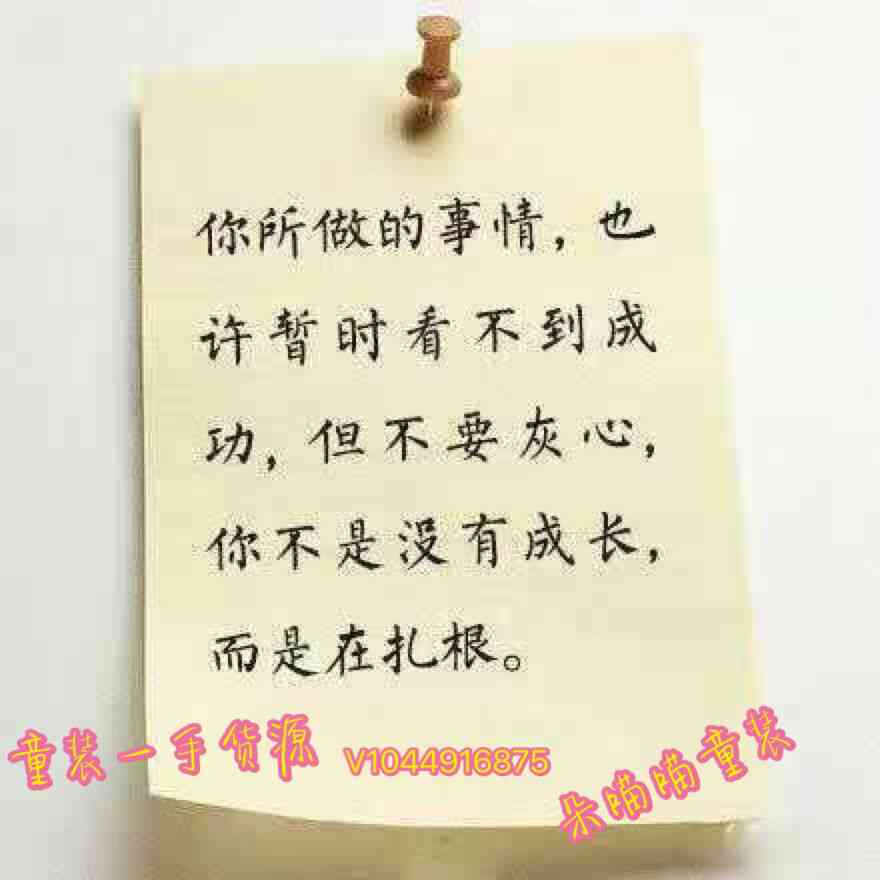 你所做的事情，也
许暂时看不到成
功，但不要灰心，
你不是没有成长，
而是在扎根。
童装一手货源
V1044916875
朵喵喵童装